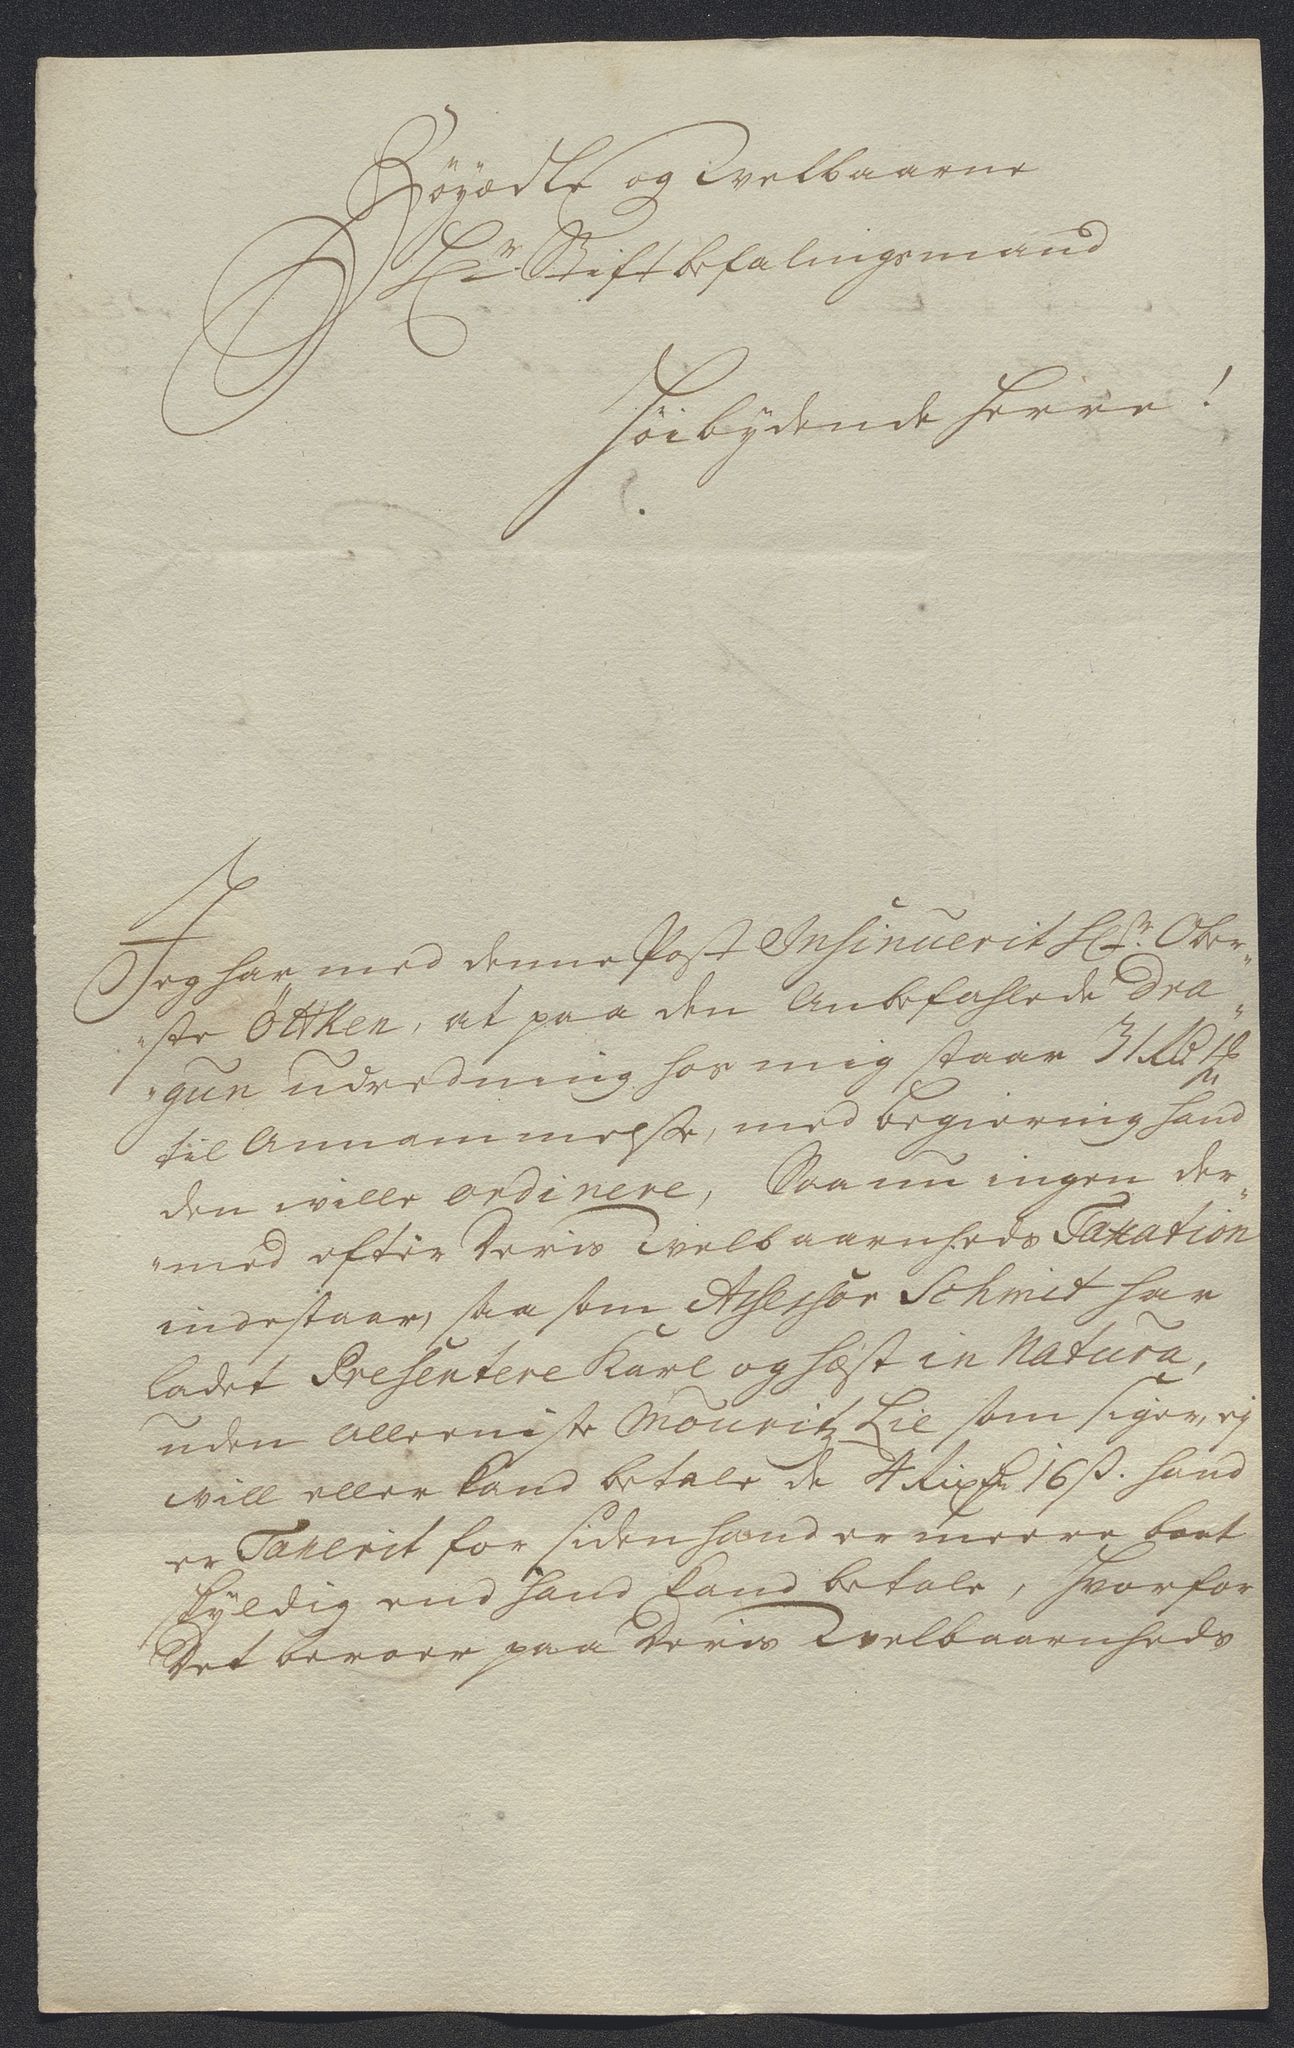 Höyædle og Welbaarne
Hr. Stiftbefalingsmand
Höibydende Herre!
Jeg har med denne Post Insinuerit Hr. Ober-
"ste Öttken, at paa den Anbefahlede Dra-
"gun udredning hos mig staar 31 Rd
til Annammelse, med begiering hand
den wille ordinere, Saa nu ingen der-
"med efter Deris Welbaarnheds Taxation
indestaar, saa som Assessor Schmit har
ladet Presentere Karl og hæst in Natura,
uden alleeniste Mouritz Lie som siger, ej
will eller kand betale de 4 Rixdr 16 s. hand
er Taxerit for siden hand er meere bort
skyldig end hand kand betale, hvorfor
Det beroer paa Deris Welbaarnheds